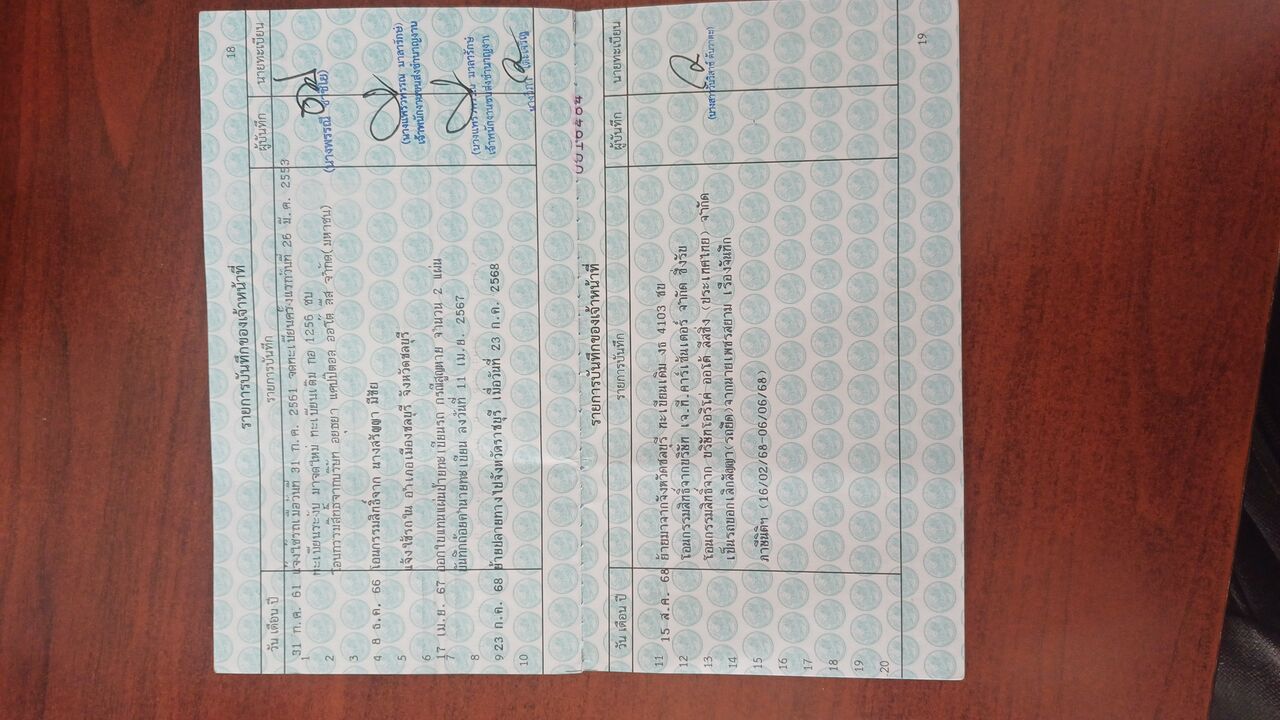 18
รายการบันทึกของเจ้าหน้าที่
วัน เดือน ปี รายการบันทึก ผู้บันทึก นายทะเบียน
31 ก.ค. 61 แจ้งใช้รถเมื่อวันที่ 31 ก.ค. 2561 จดทะเบียนครั้งแรกวันที่ 26 มี.ค. 2553
1 ทะเบียนระงับ มาจดใหม่ ทะเบียนเดิม กอ 1256 ชบ
2 โอนกรรมสิทธิ์จากบริษัท อยุธยา แคปปิตอล ออโต้ ลีส จำกัด(มหาชน)
(นางพรรณี
3
4 8 ธ.ค. 66 โอนกรรมสิทธิ์จาก นางสรัญญา มีชัย
(นางแพรวพรรณ มาลารักษ์)
5 แจ้งใช้รถใน อำเภอเมืองชลบุรี จังหวัดชลบุรี
เจ้าพนักงานขนส่งชำนาญงาน
6 17 เม.ย. 67 ออกใบแทนแผ่นป้ายทะเบียนรถ กรณีสูญหาย จำนวน 2 แผ่น
7 บันทึกถ้อยคำนายทะเบียน ลงวันที่ 11 เม.ย. 2567
(นางแพรวพรรณ มาลารักษ์
8 เจ้าพนักงานขนส่งชำนาญงาน
9 23 ก.ค. 68 ย้ายปลายทางไปจังหวัดราชบุรี เมื่อวันที่ 23 ก.ค. 2568
10
0010404
รายการบันทึกของเจ้าหน้าที่
วัน เดือน ปี รายการบันทึก ผู้บันทึก นายทะเบียน
11 15 ส.ค. 68 ย้ายมาจากจังหวัดชลบุรี ทะเบียนเดิม งธ 4103 ชบ
12 โอนกรรมสิทธิ์จากบริษัท เจ.ที.คาร์เซ็นเตอร์ จำกัด ซึ่งรับ
13 โอนกรรมสิทธิ์จาก บริษัทโอริโค่ ออโต้ ลีสซิ่ง (ประเทศไทย) จำกัด
14 เป็นรถบอกเลิกสัญญา(รถยึด)จากนายเพชรสยาม เรืองจันทึก
15 ภาษีนิติฯ (16/02/68-06/06/68)
16
17
18
19
20
19